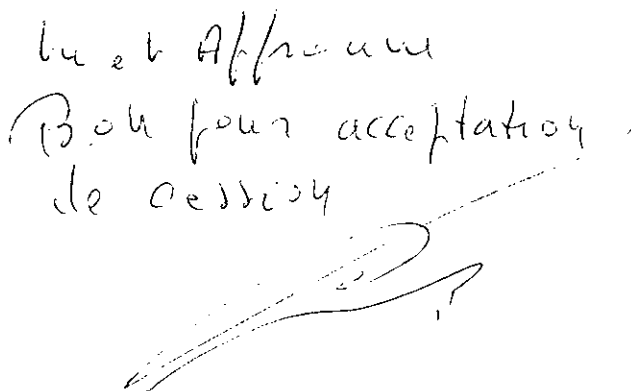 Lu et Approuvé
Bon pour acceptation
de cession